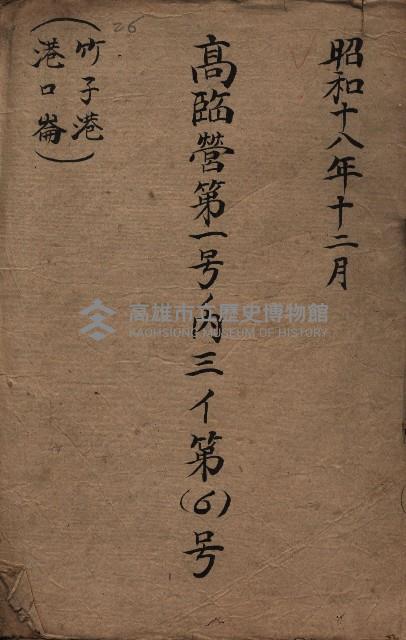 昭和十八年十二月
高臨營第一号ノ內三イ第(6)号
(竹子港
港口崙)
26
高雄市立歷史博物館
KAOHSIUNG MUSEUM OF HISTORY